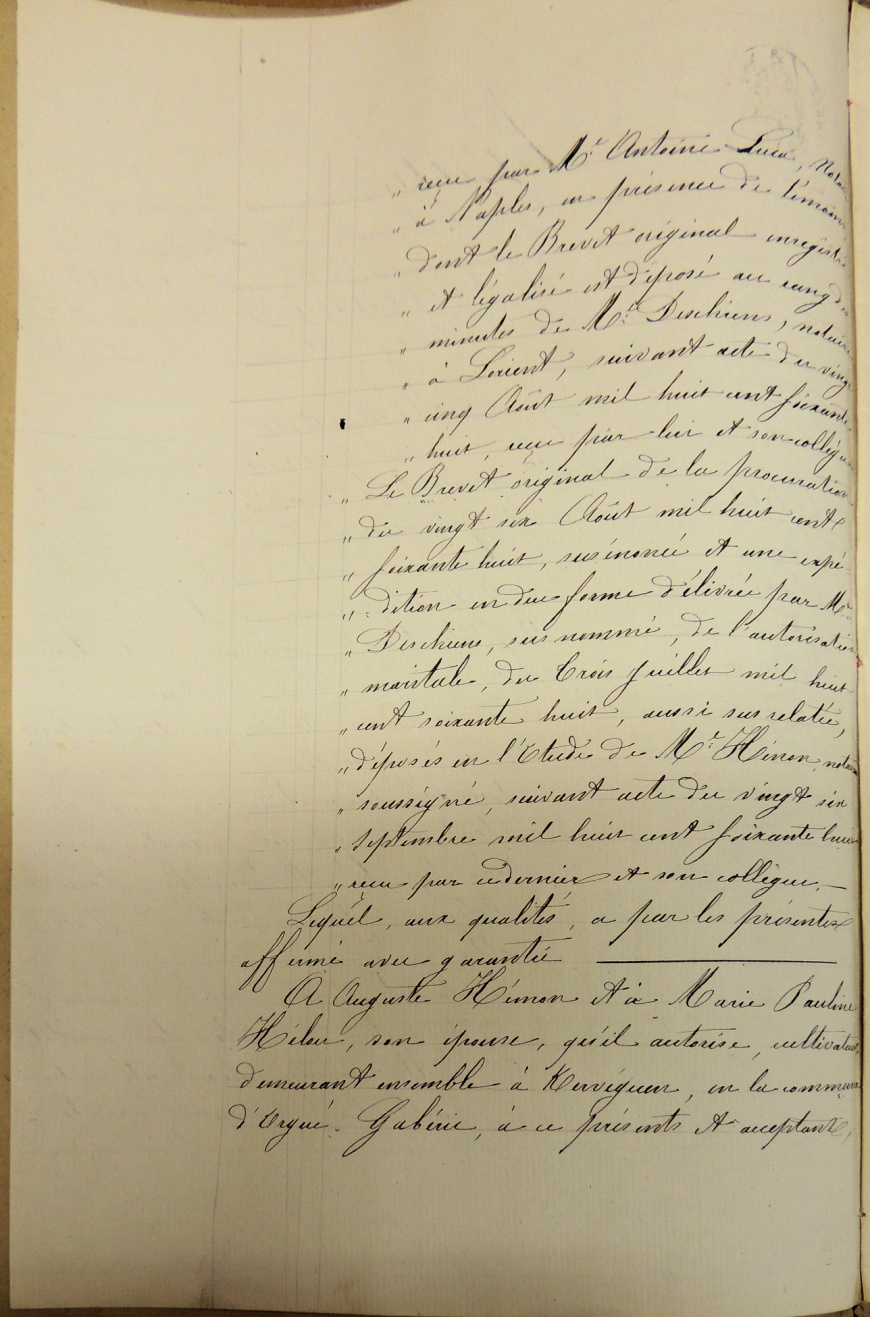 „ reçu par Me Antoine Luca, Notai
„ à Naples, en présence de témoins
„ dont le Brevet original enregistré
„ et légalisé est déposé au rang des
„ minutes de Me Deschiens, notaire
„ à Lorient, suivant acte du vingt
„ cinq Août mil huit cent soixante
„ huit, reçu par lui et son collègue
„ Le Brevet original de la procuration
„ du vingt six Août mil huit cent
„ soixante huit, susénoncé et une expé
„ dition en due forme délivrée par Me
„ Deschiens, sus nommé, de l'autorisation
„ maritale, du trois juillet mil huit
„ cent soixante huit, aussi sus relatée,
„ déposés en l'Etude de Me Hémon, notaire
„ soussigné, suivant acte du vingt six
„ septembre mil huit cent soixante huit
„ reçu par ce dernier et son collègue. —
Lequel, aux qualités, a par les présentes
affermé avec garantie
A Auguste Hémon et à Marie Pauline
Hélou, son épouse, qu'il autorise, cultivateurs,
demeurant ensemble à Kervéguen, en la commune
d'Ergué-Gabéric, à ce présents et acceptant,